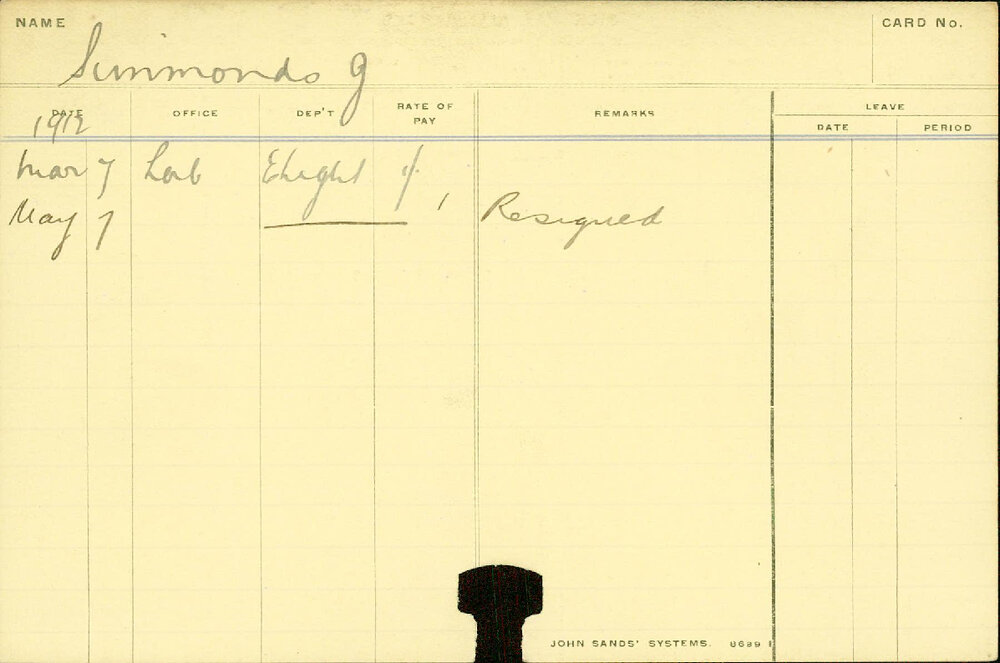 NAME
Simmonds G
CARD No.
DATE OFFICE DEP'T RATE OF PAY REMARKS LEAVE
DATE PERIOD
1912
Mar 7 Lab Elec Light
May 7 Resigned
JOHN SANDS' SYSTEMS. 8689